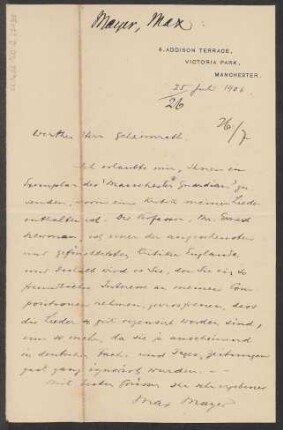 Mayer, Max
4. ADDISON TERRACE,
VICTORIA PARK,
MANCHESTER.
25 Juli 1906
26
26/7
Werther Herr Geheimrath.
Ich erlaubte mir, Ihnen ein
Exemplar des "Manchester Guardian" zu
senden, worin eine Kritik meiner Lieder
enthalten ist. Der Verfasser, Mr. Ernest
Newman, ist einer der angesehensten
und gefürchtetsten Kritiker Englands
und deshalb wird es Sie, der Sie ein so
freundliches Interesse an meinen Com-
positionen nehmen, gewiss freuen, dass
die Lieder so gut rezensirt worden sind,
um so mehr, da sie ja anscheinend
in deutschen Fach- und Tages-Zeitungen
ganz ignorirt wurden. --
Mit besten Grüssen Ihr ergebener
Max Mayer